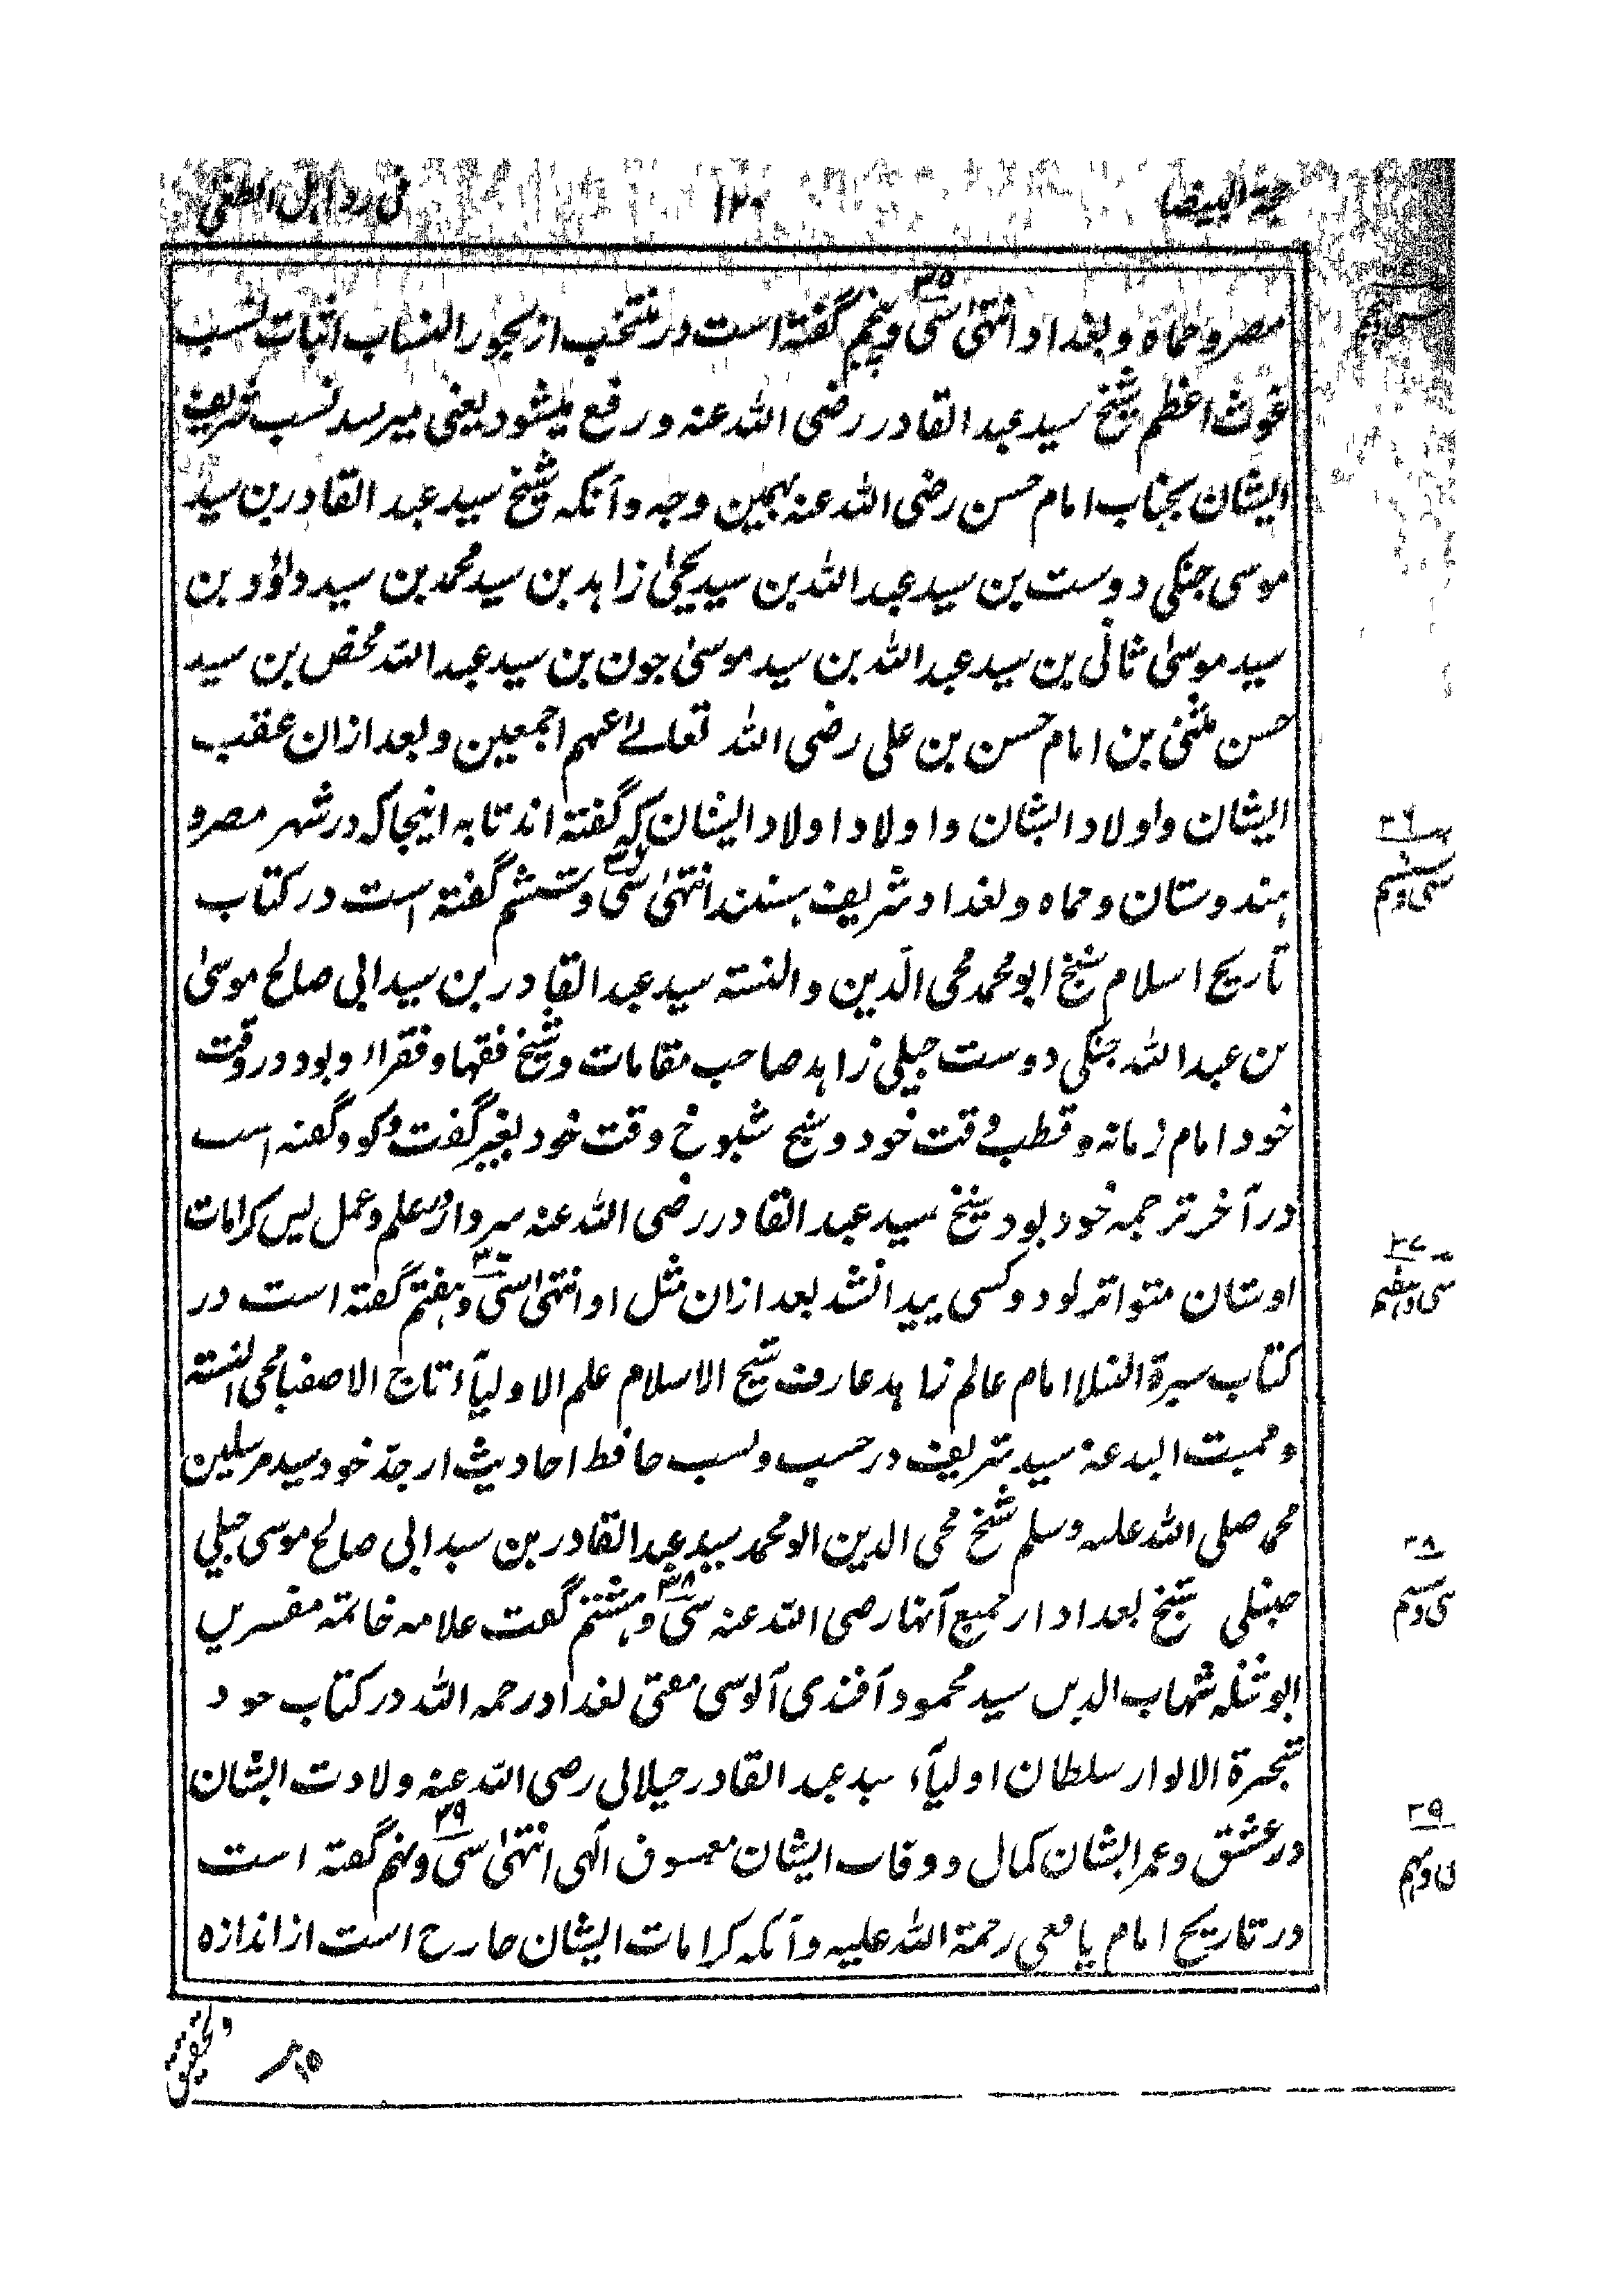 حجة البیضا ۱۲۰ فی رد اہل الطغی
مصر و حماة و بغداد انتہیٰ سی و پنجم گفته است در منتخب از بحور النساب اثبات نسب
۳۵
غوث اعظم شیخ سید عبد القادر رضی الله عنه و رفع میشود یعنی میرسد نسب شریف
ایشان بجناب امام حسن رضی الله عنه بہمین وجه و آنکه شیخ سید عبد القادر بن سید
موسی جنگی دوست بن سید عبد الله بن سید یحیٰی زاہد بن سید محمد بن سید داؤد بن
سید موسیٰ ثانی بن سید عبد الله بن سید موسیٰ جون بن سید عبد الله محض بن سید
حسن مثنیٰ بن امام حسن بن علی رضی الله تعالےٰ عنہم اجمعین و بعد ازان عقب
ایشان و اولاد ایشان و اولاد اولاد ایشان که گفته اند تا به اینجا که در شہر مصر و
ہندوستان و حماه و بغداد شریف ہستند انتہیٰ سی و ششم گفته است در کتاب
۳۶
سی و ششم
تاریخ اسلام شیخ ابو محمد محی الدین والسنته سید عبد القادر بن سید ابی صالح موسیٰ
بن عبد الله جنگی دوست جیلی زاہد صاحب مقامات و شیخ فقہا و فقرا بود در وقت
خود امام زمانه و قطب وقت خود و شیخ شیوخ وقت خود بغیر گفت و گو و گفته است
در آخر ترجمه خود بود شیخ سید عبد القادر رضی الله عنه سردار علم و عمل پس کرامات
اوشان متواتر بود و کسی پیدا نشد بعد ازان مثل او انتہیٰ سی و ہفتم گفته است در
۳۷
سی و ہفتم
کتاب سیرة النبلا امام عالم زاہد عارف شیخ الاسلام علم الاولیآء تاج الاصفیا محی السنته
و ممیت البدعة سید شریف در حسب و نسب حافظ احادیث از جد خود سید مرسلین
محمد صلی الله علیه وسلم شیخ محی الدین ابو محمد سید عبد القادر بن سید ابی صالح موسی جیلی
حنبلی شیخ بغداد از جمیع آنہا رضی الله عنه سی و ہشتم گفت علامه خاتمه مفسرین
۳۸
ابو ثناء شہاب الدین سید محمود آفندی آلوسی مفتی بغداد رحمه الله در کتاب خود
شجرة الانوار سلطان اولیآء سید عبد القادر جیلانی رضی الله عنه ولادت ایشان
در عشق و عمر ایشان کمال و وفات ایشان معسوف الہی انتہیٰ سی و نہم گفته است
۳۹
در تاریخ امام یافعی رحمة الله علیه و آنکه کرامات ایشان خارج است از اندازه
و تحقیق